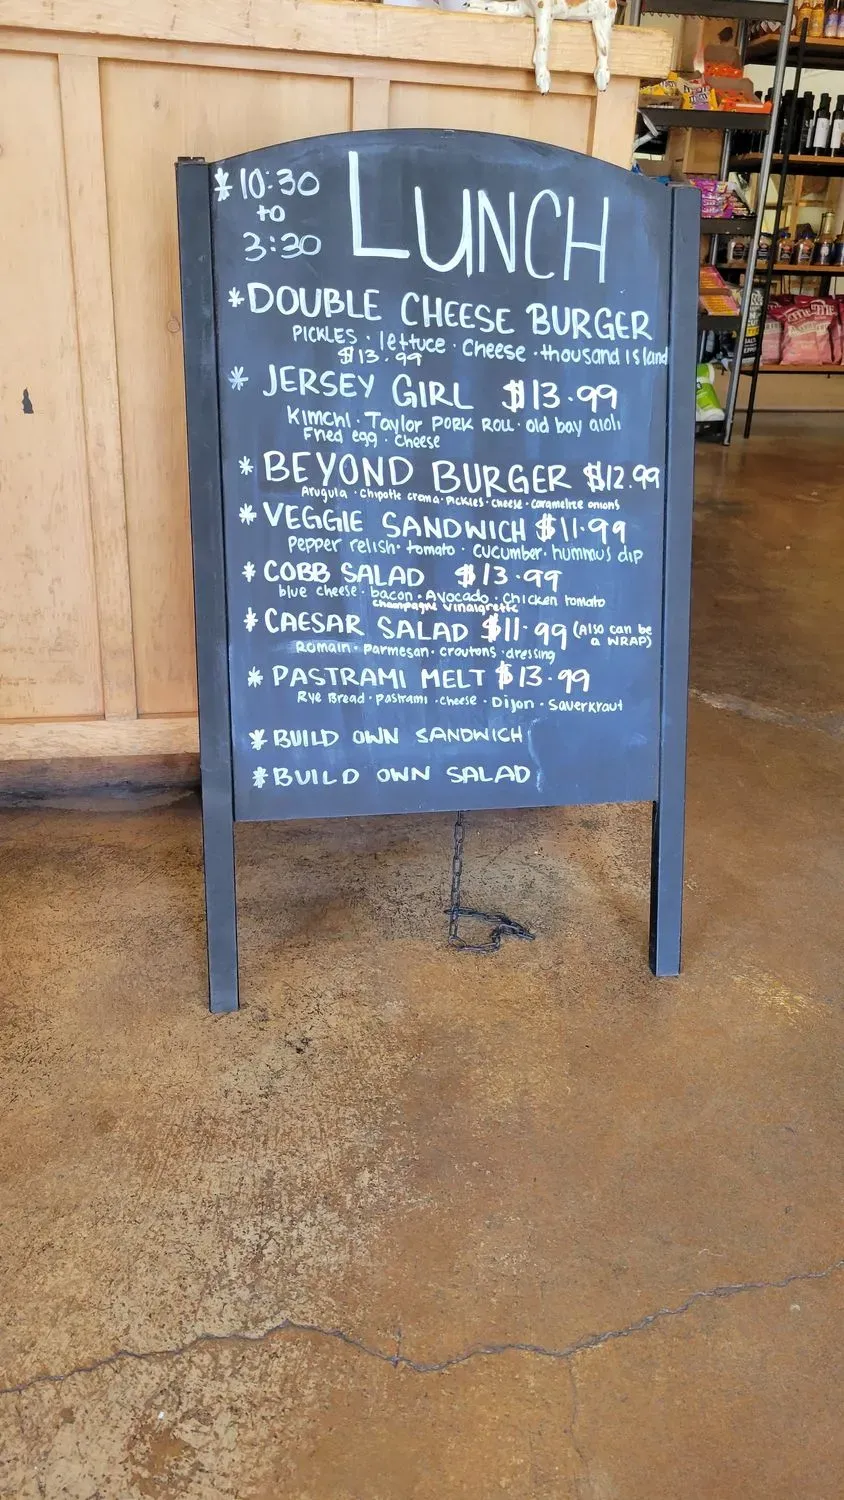 * 10:30
to
3:30
LUNCH
* DOUBLE CHEESE BURGER
PICKLES · lettuce · cheese · thousand island
$13.99
* JERSEY GIRL $13.99
Kimchi · Taylor PORK ROLL · old bay aioli
Fried egg · cheese
* BEYOND BURGER $12.99
Arugula · Chipotle crema · Pickles · cheese · caramelize onions
* VEGGIE SANDWICH $11.99
Pepper relish · tomato · cucumber · hummus dip
* COBB SALAD $13.99
blue cheese · bacon · Avocado · chicken tomato
champagne vinaigrette
* CAESAR SALAD $11.99 (Also can be
a WRAP)
Romain · Parmesan · croutons · dressing
* PASTRAMI MELT $13.99
Rye Bread · Pastrami · cheese · Dijon · sauerkraut
* BUILD OWN SANDWICH
* BUILD OWN SALAD